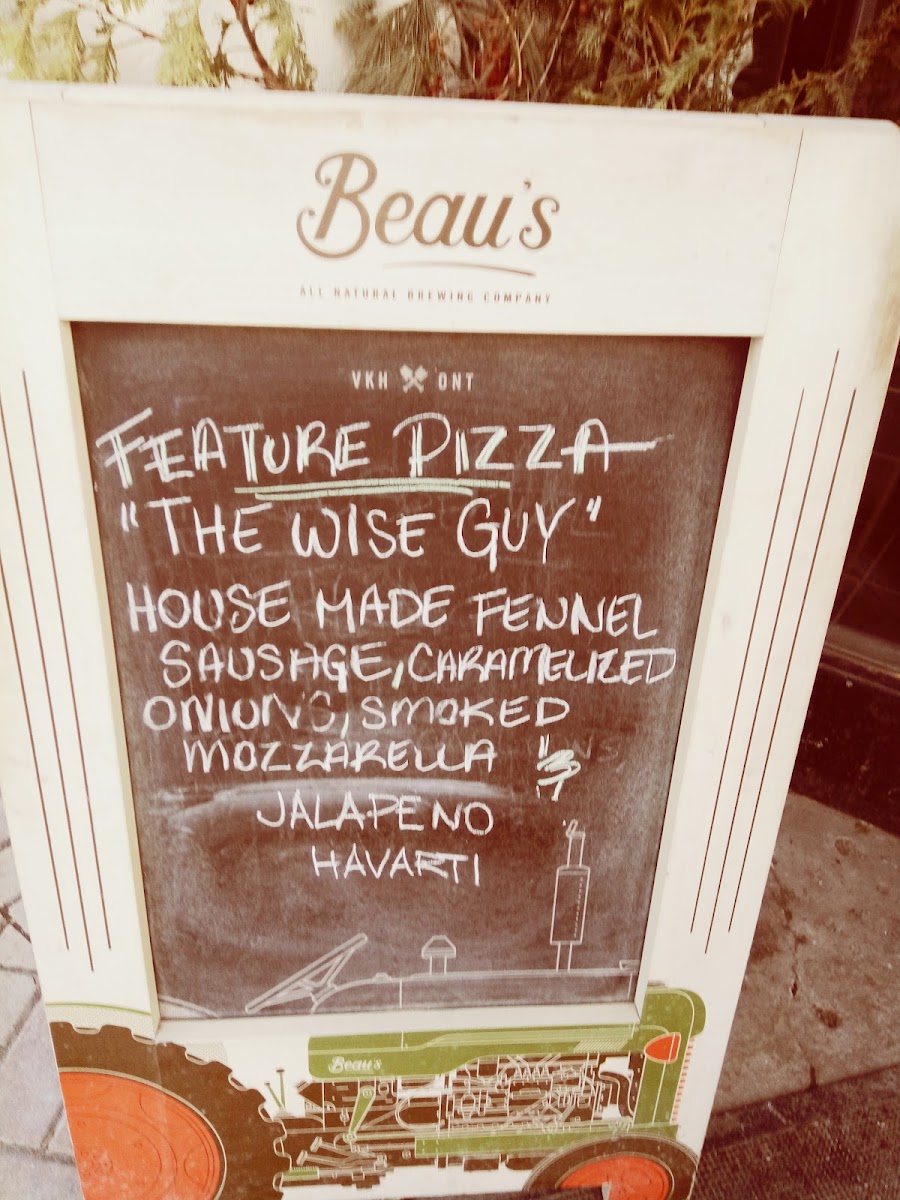 Beau's
ALL NATURAL BREWING COMPANY
VKH ONT
FEATURE PIZZA
"THE WISE GUY"
HOUSE MADE FENNEL
SAUSAGE, CARAMELIZED
ONIONS, SMOKED
MOZZARELLA
JALAPENO
HAVARTI
Beau's